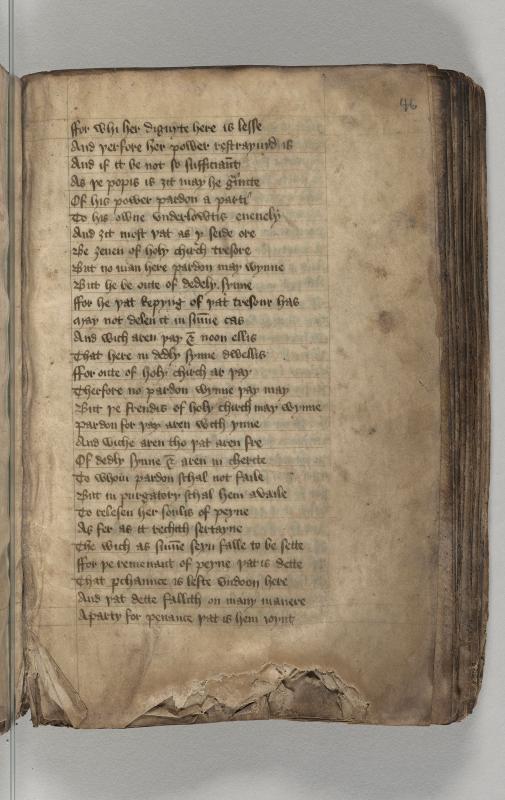 46
ffor whi her dignyte here is lesse
And yerfore her power restraynyd is
And if it be not so sufficiant
As ye popis is ȝit may he
Of his power pardon a parti
To his owne vnderlowtis euenely
And ȝit most yat as y seide ore
Be ȝeuen of holy chirch tresore
But no man here pardon may wynne
But he be oute of dedely synne
ffor he yat kepyng of yat tresour has
May not delen it in summe cas
And wich aren yay & noon ellis
That here in dedly synne dwellis
ffor oute of holy chirch ar yay
Therfore no pardon wynne yay may
But ye frendis of holy chirch may wynne
Pardon for yay aren with ynne
And wiche aren tho yat aren fre
Of dedly synne & aren in cherite
To whom pardon schal not faile
But in purgatory schal hem availe
To relesen her soulis of peyne
As fer as it rechith sertayne
The wich as summe seyn falle to be sette
ffor ye remenant of peyne yat is dette
That is lefte vndoon here
And yat dette fallith on many manere
A party for penance yat is hem ioynt